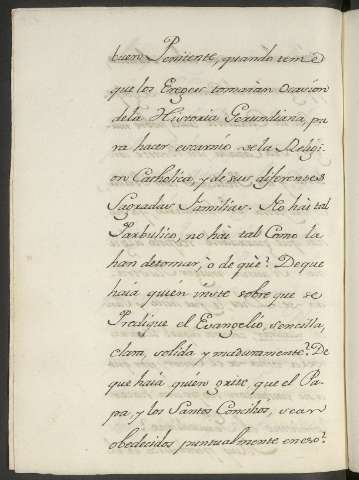 buen Penitente, quando teme
que los Ereges tomarian Ocasion
dela Historia Gerundiana, pa
ra hacer escarnio de la Religi-
on Catholica, y de sus diferentes
Sagradas Familias. No hái tal
Parbulico, no hái tal. Como la
han detomar, ò de què? Deque
haia quién inste sobre que se
Predique el Evangelio, sencilla,
clara, solida y maduramente? De
que haia quien grite, que el Pa-
pa, y los Santos Concilios, sean
obedecidos puntualmente en eso?